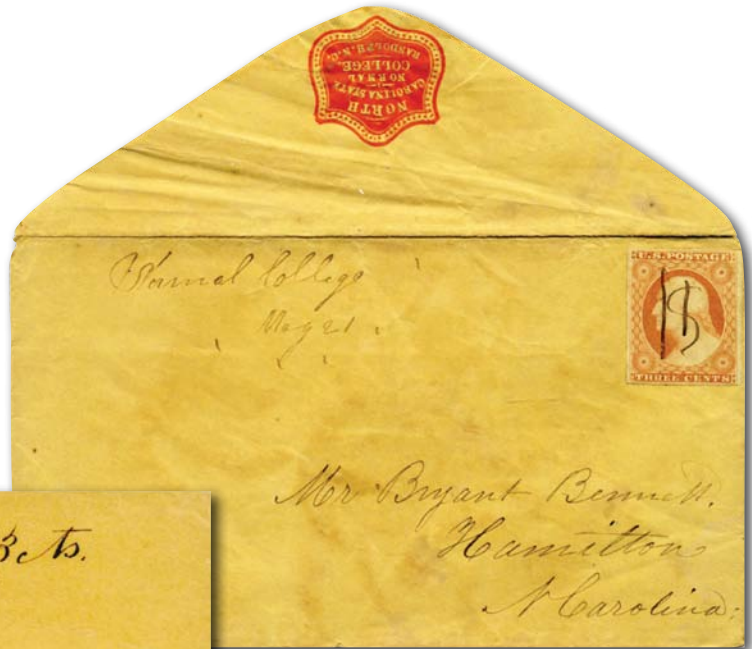 NORTH
CAROLINA STATE
NORMAL
COLLEGE
RANDOLPH, N.C.
Normal College
U.S. POSTAGE
THREE CENTS
Mr Bryant Bennett.
Hamilton
N Carolina.
3 cts.